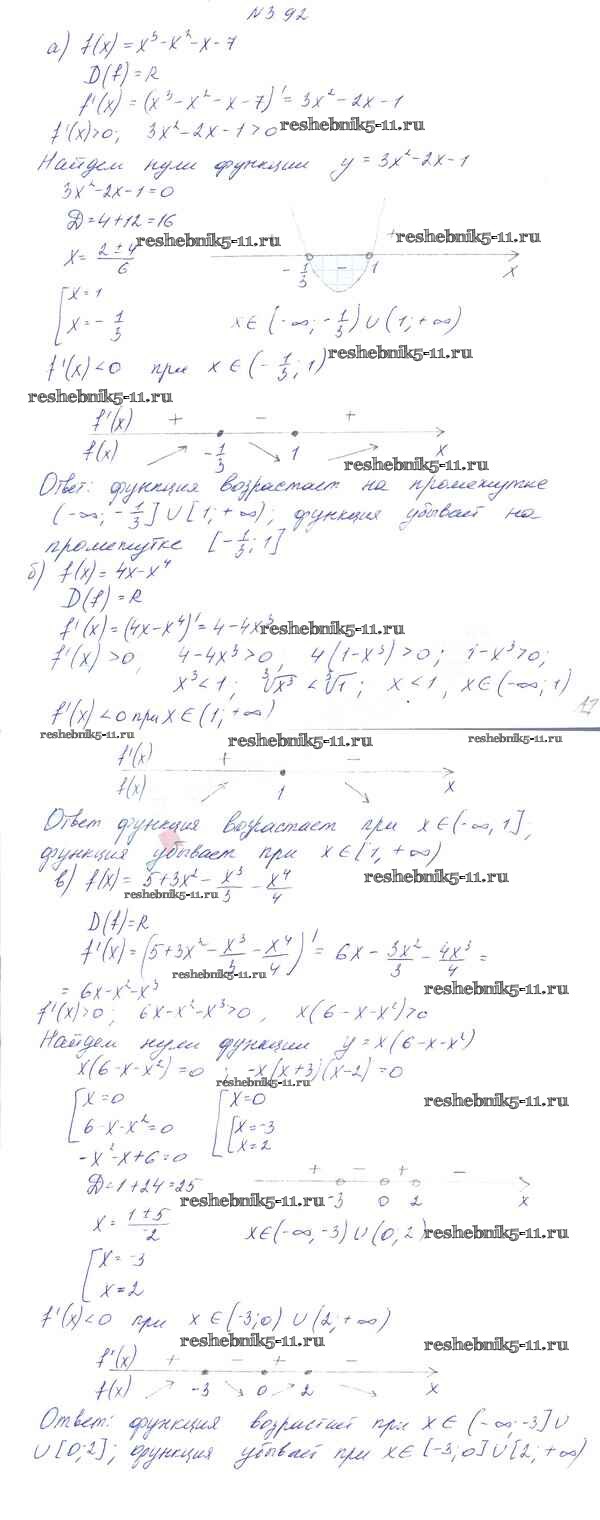 №392
а) f(x) = x³-x²-x-7
D(f) = R
f'(x) = (x³-x²-x-7)' = 3x²-2x-1
f'(x)>0; 3x²-2x-1>0 reshebnik5-11.ru
Найдем нули функции y = 3x²-2x-1
3x²-2x-1=0
D=4+12=16
reshebnik5-11.ru + reshebnik5-11.ru
x = (2±4)/6
- 1/3 - 1 x
[x=1
[x=-1/3 x∈(-∞;-1/3)∪(1;+∞)
f'(x)<0 при x∈(-1/3;1) reshebnik5-11.ru
reshebnik5-11.ru
f'(x) + - +
f(x) -1/3 1 x
reshebnik5-11.ru
Ответ: функция возрастает на промежутке
(-∞;-1/3]∪[1;+∞); функция убывает на
промежутке [-1/3;1]
б) f(x)=4x-x⁴
D(f)=R
f'(x)=(4x-x⁴)'=4-4x³ reshebnik5-11.ru
f'(x)>0, 4-4x³>0; 4(1-x³)>0; 1-x³>0;
x³<1; ∛x³<∛1; x<1, x∈(-∞;1)
f'(x)<0 при x∈(1;+∞)
reshebnik5-11.ru reshebnik5-11.ru reshebnik5-11.ru
f'(x) + -
f(x) 1 x
Ответ функция возрастает при x∈(-∞,1];
функция убывает при x∈[1,+∞)
в) f(x)=5+3x²-x³/3-x⁴/4 reshebnik5-11.ru
reshebnik5-11.ru
D(f)=R
f'(x)=(5+3x²-x³/3-x⁴/4)'=6x-3x²/3-4x³/4=
reshebnik5-11.ru
=6x-x²-x³ reshebnik5-11.ru
f'(x)>0; 6x-x²-x³>0, x(6-x-x²)>0
Найдем нули функции y=x(6-x-x²)
x(6-x-x²)=0; -x(x+3)(x-2)=0
reshebnik5-11.ru
[x=0 [x=0 reshebnik5-11.ru
[6-x-x²=0 [x=-3
[x=2
-x²-x+6=0
D=1+24=25 + - + -
reshebnik5-11.ru -3 0 2 x
x=(1±5)/-2 x∈(-∞,-3)∪(0,2) reshebnik5-11.ru
[x=-3
[x=2
f'(x)<0 при x∈(-3;0)∪(2;+∞)
reshebnik5-11.ru reshebnik5-11.ru
f'(x) + - + -
f(x) -3 0 2 x
Ответ: функция возрастает при x∈(-∞;-3]∪
∪[0;2]; функция убывает при x∈[-3;0]∪[2;+∞)